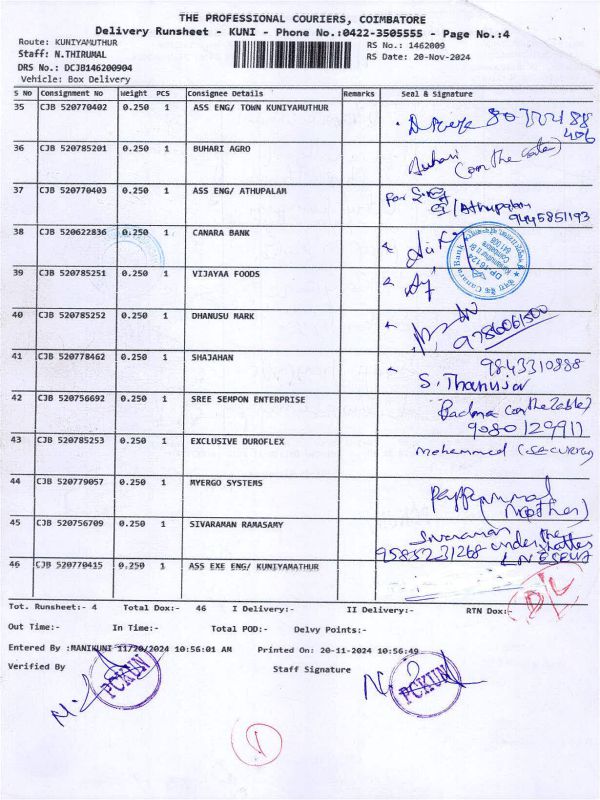 THE PROFESSIONAL COURIERS, COIMBATORE
Delivery Runsheet - KUNI - Phone No.:0422-3505555 - Page No.:4
Route: KUNIYAMUTHUR
RS No.: 1462009
Staff: N.THIRUMAL
RS Date: 20-Nov-2024
DRS No.: DCJB146200904
Vehicle: Box Delivery
S No Consignment No Weight PCS Consignee Details Remarks Seal & Signature
35 CJB 520770402 0.250 1 ASS ENG/ TOWN KUNIYAMUTHUR
36 CJB 520785201 0.250 1 BUHARI AGRO Buhari (on the Gate)
37 CJB 520770403 0.250 1 ASS ENG/ ATHUPALAM For
/Athupalam
9445851193
38 CJB 520622836 0.250 1 CANARA BANK
Canara Bank
DP 16124
39 CJB 520785251 0.250 1 VIJAYAA FOODS
40 CJB 520785252 0.250 1 DHANUSU MARK 9786061500
41 CJB 520778462 0.250 1 SHAJAHAN 9843310888
S. Thanuja
42 CJB 520756692 0.250 1 SREE SEMPON ENTERPRISE Padma (on the Table)
9080129911
43 CJB 520785253 0.250 1 EXCLUSIVE DUROFLEX mohammed (SECURITY)
44 CJB 520779057 0.250 1 MYERGO SYSTEMS
(Mother)
45 CJB 520756709 0.250 1 SIVARAMAN RAMASAMY Sivaraman
9585231268 under the
46 CJB 520770415 0.250 1 ASS EXE ENG/ KUNIYAMATHUR
D/L
Tot. Runsheet:- 4 Total Dox:- 46 I Delivery:- II Delivery:- RTN Dox:-
Out Time:- In Time:- Total POD:- Delvy Points:-
Entered By :MANIKUNI 11/20/2024 10:56:01 AM Printed On: 20-11-2024 10:56:49
Verified By Staff Signature
PCKUN PCKUN
1